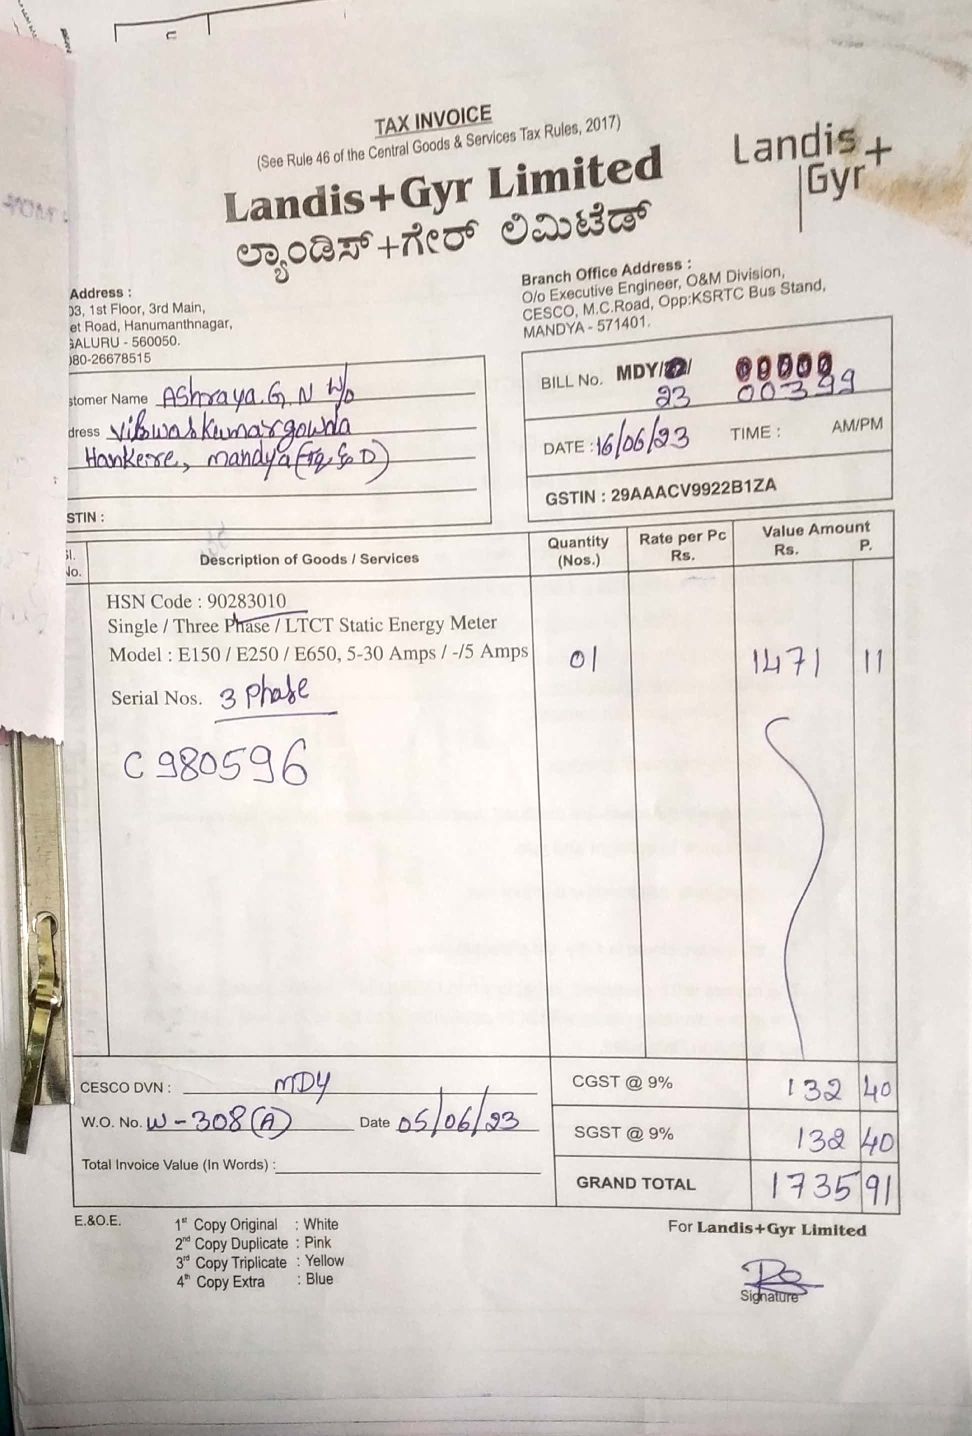 TAX INVOICE
(See Rule 46 of the Central Goods & Services Tax Rules, 2017)
Landis+Gyr Limited
ಲ್ಯಾಂಡಿಸ್+ಗೇರ್ ಲಿಮಿಟೆಡ್
Landis+
Gyr
Address :
03, 1st Floor, 3rd Main,
et Road, Hanumanthnagar,
GALURU - 560050.
080-26678515
Branch Office Address :
O/o Executive Engineer, O&M Division,
CESCO, M.C.Road, Opp:KSRTC Bus Stand,
MANDYA - 571401.
stomer Name Ashraya.G.N W/o
dress Vishwaskumargowda
Hankere, mandya
STIN :
BILL No. MDY/
23 00399
DATE : 16/06/23 TIME : AM/PM
GSTIN : 29AAACV9922B1ZA
Sl. No. Description of Goods / Services Quantity (Nos.) Rate per Pc Rs. Value Amount Rs. P.
HSN Code : 90283010
Single / Three Phase / LTCT Static Energy Meter
Model : E150 / E250 / E650, 5-30 Amps / -/5 Amps 01 1471 11
Serial Nos. 3 Phase
C 980596
CESCO DVN : MDY
W.O. No. W-308(A) Date 05/06/23
Total Invoice Value (In Words) :
CGST @ 9% 132 40
SGST @ 9% 132 40
GRAND TOTAL 1735 91
E.&O.E.
1st Copy Original : White
2nd Copy Duplicate : Pink
3rd Copy Triplicate : Yellow
4th Copy Extra : Blue
For Landis+Gyr Limited
Signature